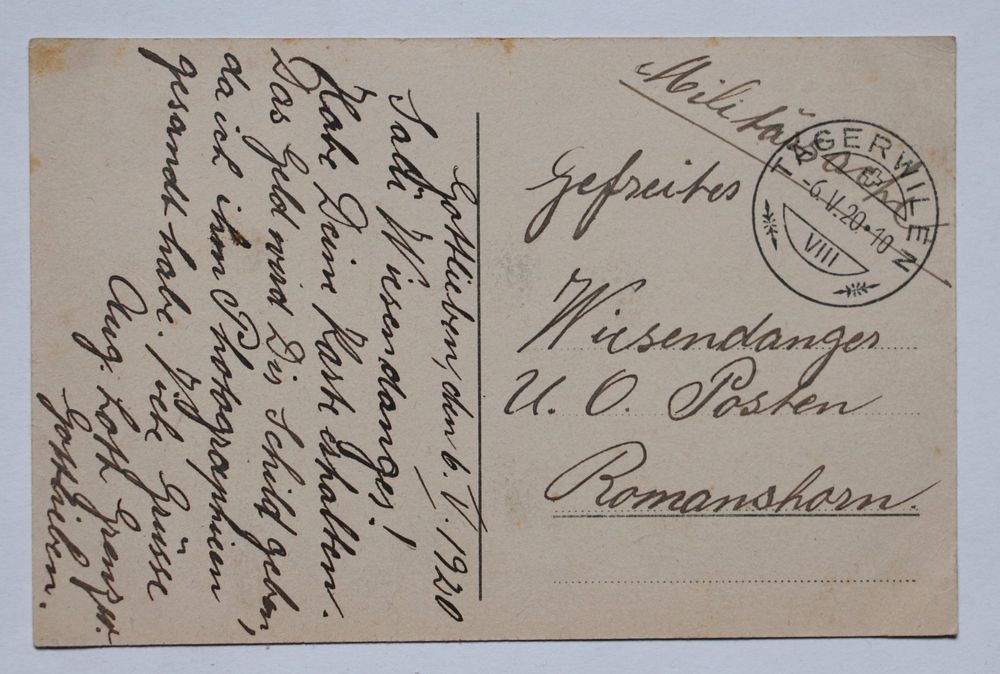 Gottlieben, den 6. V. 1920
Salü Wiesendanger!
Habe Deine Karte erhalten.
Das Geld wird Dir Schild geben,
da ich ihm Photographieen
gesandt habe. Viele Grüsse
Aug. Loth Grenzw.
Gottlieben.
Militärsache
TÄGERWILEN
-6.V.20•10
VIII
Gefreiter
Wiesendanger
U. O. Posten
Romanshorn.